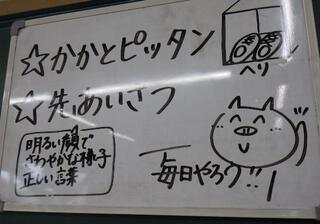 ☆かかとピッタン
ヘリ
☆先あいさつ
明るい顔で
さわやかな様子
正しい言葉
毎日やろう!!